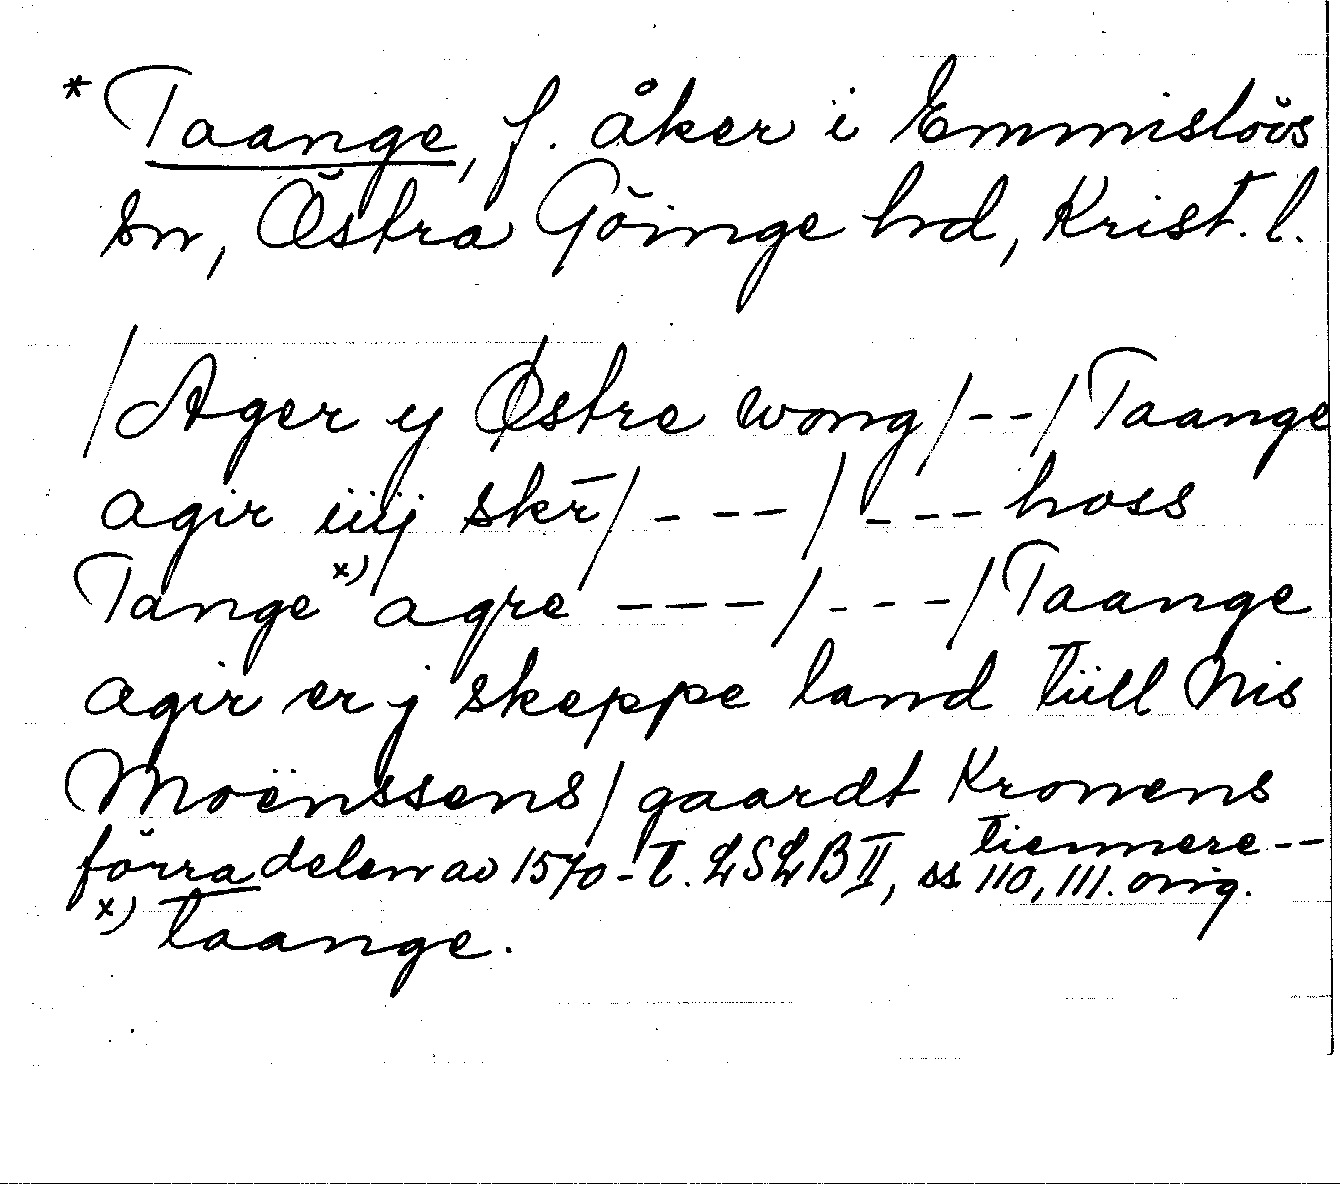 * Taange, f. åker i Emmislövs
sn, Östra Göinge hd, Krist. l.
/Ager y Østre wong/--/Taange
agir iiij skr̄/----/----hoss
Tange x) agre ---/---/Taange
agir er j skeppe land tiill Nis
Moënssens/gaardt Kronens
tiennere--
förra delen av 1570-t. LSLB II, ss 110, 111. orig.
x) taange.